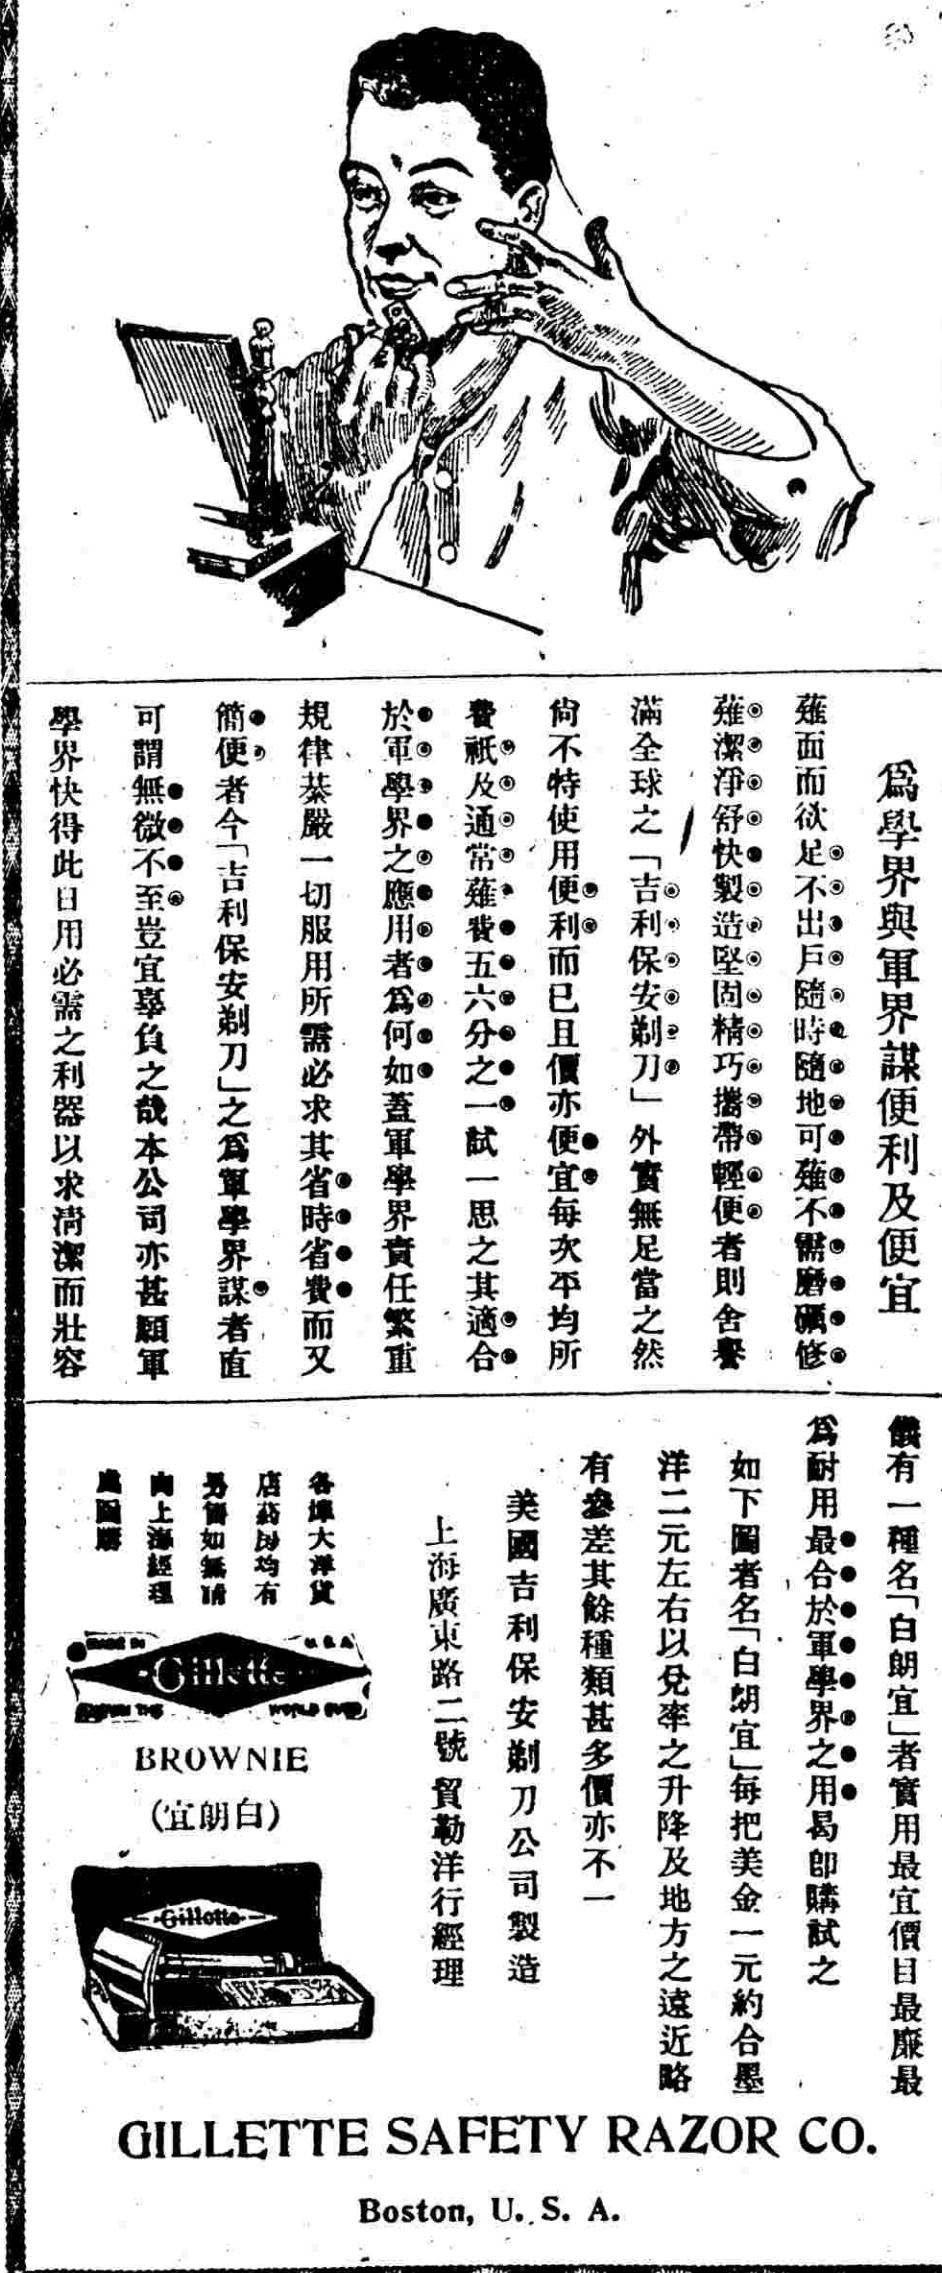 爲學界與軍界謀便利及便宜
薙面而欲足不出戶隨時隨地可薙不需磨礪修
薙潔淨舒快製造堅固精巧攜帶輕便者則舍譽
滿全球之「吉利保安剃刀」外實無足當之然
尙不特使用便利而已且價亦便宜每次平均所
費祇及通常薙費五六分之一試一思之其適合
於軍學界之應用者爲何如蓋軍學界責任繁重
規律綦嚴一切服用所需必求其省時省費而又
簡便者今「吉利保安剃刀」之爲軍學界謀者直
可謂無微不至豈宜辜負之哉本公司亦甚願軍
學界快得此日用必需之利器以求淸潔而壯容
儀有一種名「白朗宜」者實用最宜價目最廉最
爲耐用最合於軍學界之用曷卽購試之
如下圖者名「白朗宜」每把美金一元約合墨
洋二元左右以兌率之升降及地方之遠近略
有參差其餘種類甚多價亦不一
美國吉利保安剃刀公司製造
上海廣東路二號貿勒洋行經理
各埠大洋貨
店葯房均有
另售如無請
向上海經理
處函購
MADE IN U.S.A.
Gillette
KNOWN THE WORLD OVER
BROWNIE
(宜朗白)
Gillette
GILLETTE SAFETY RAZOR CO.
Boston, U. S. A.